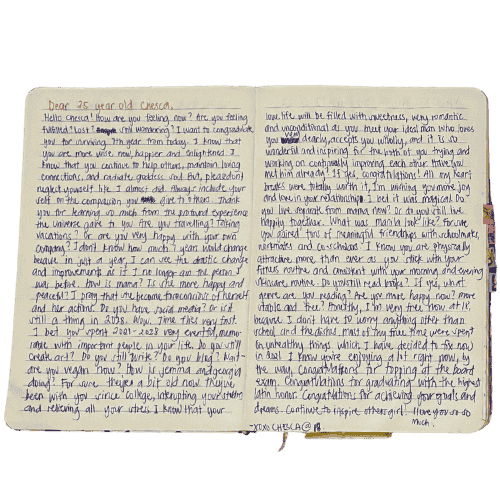 Dear 25 year old Chesca,
Hello Chesca! How are you feeling now? Are you feeling
fulfilled? Lost? still wondering? I want to congratulate
you for surviving 7th year from today. I know that
you are more wise now, happier and enlightened. I
know that you continue to help others, maintain loving
connections, and radiate goddess soul. But, please don't
neglect yourself like I almost did. Always include your
self on the compassion you give to others. Thank
you for learning so much from the profound experience
the universe gave to you. Are you travelling? Taking
vacations? Or are you very happy with your own
company? I don't know how much I will would change
because in just a year, I can see the drastic change
and improvement as if I no longer am the person I
was before. How is mama? Is she more happy and
peaceful? I pray that she become more conscious of herself
and her actions. Do you have social media? Or is it
still a thing in 2028. Wow, time flies very fast.
I bet you spent 2021-2028 very eventful, memo-
rable with important people in your life. Do you still
create art? Do you still write? Do you blog? Wait-
are you vegan now? How is jemma and georgia
doing? For sure they're a bit old now. They've
been with you since college, interrupting your studies
and relieving all your stress. I know that your
love life will be filled with sweetness, very romantic
and unconditional as you meet your ideal man who loves
you very dearly, accepts you wholly, and it is so
wonderful and inspiring for the both of you trying and
working on continually improving each other. Have you
met him already? If yes, congratulations! All my heart
breaks were totally worth it. I'm wishing you more joy
and love in your relationship. I bet it was magical. Do
you live separate from mama now? Or do you still live
happily together. What was manila look like? For sure
you gained tons of meaningful friendships with schoolmates,
workmates and co-schoolers. I know you are physically
attractive more than ever as you stick with your
fitness routine and consistent with your morning and evening
skincare routine. Do you still read books? If yes, what
genre are you reading? Are you more happy now? more
stable and free? Honestly, I'm very free now at 18,
because I don't have to worry anything other than
school and the dishes. Most of my free time were spent
on unhealthy things which I have decided to fix now
in 2021. I know you're enjoying a lot right now, by
the way, congratulations for topping at the board
exam. Congratulations for graduating with the highest
latin honor. Congratulations for achieving your goals and
dreams. Continue to inspire others girl! I love you so so
much.
-XOXO CHESCA @ 18